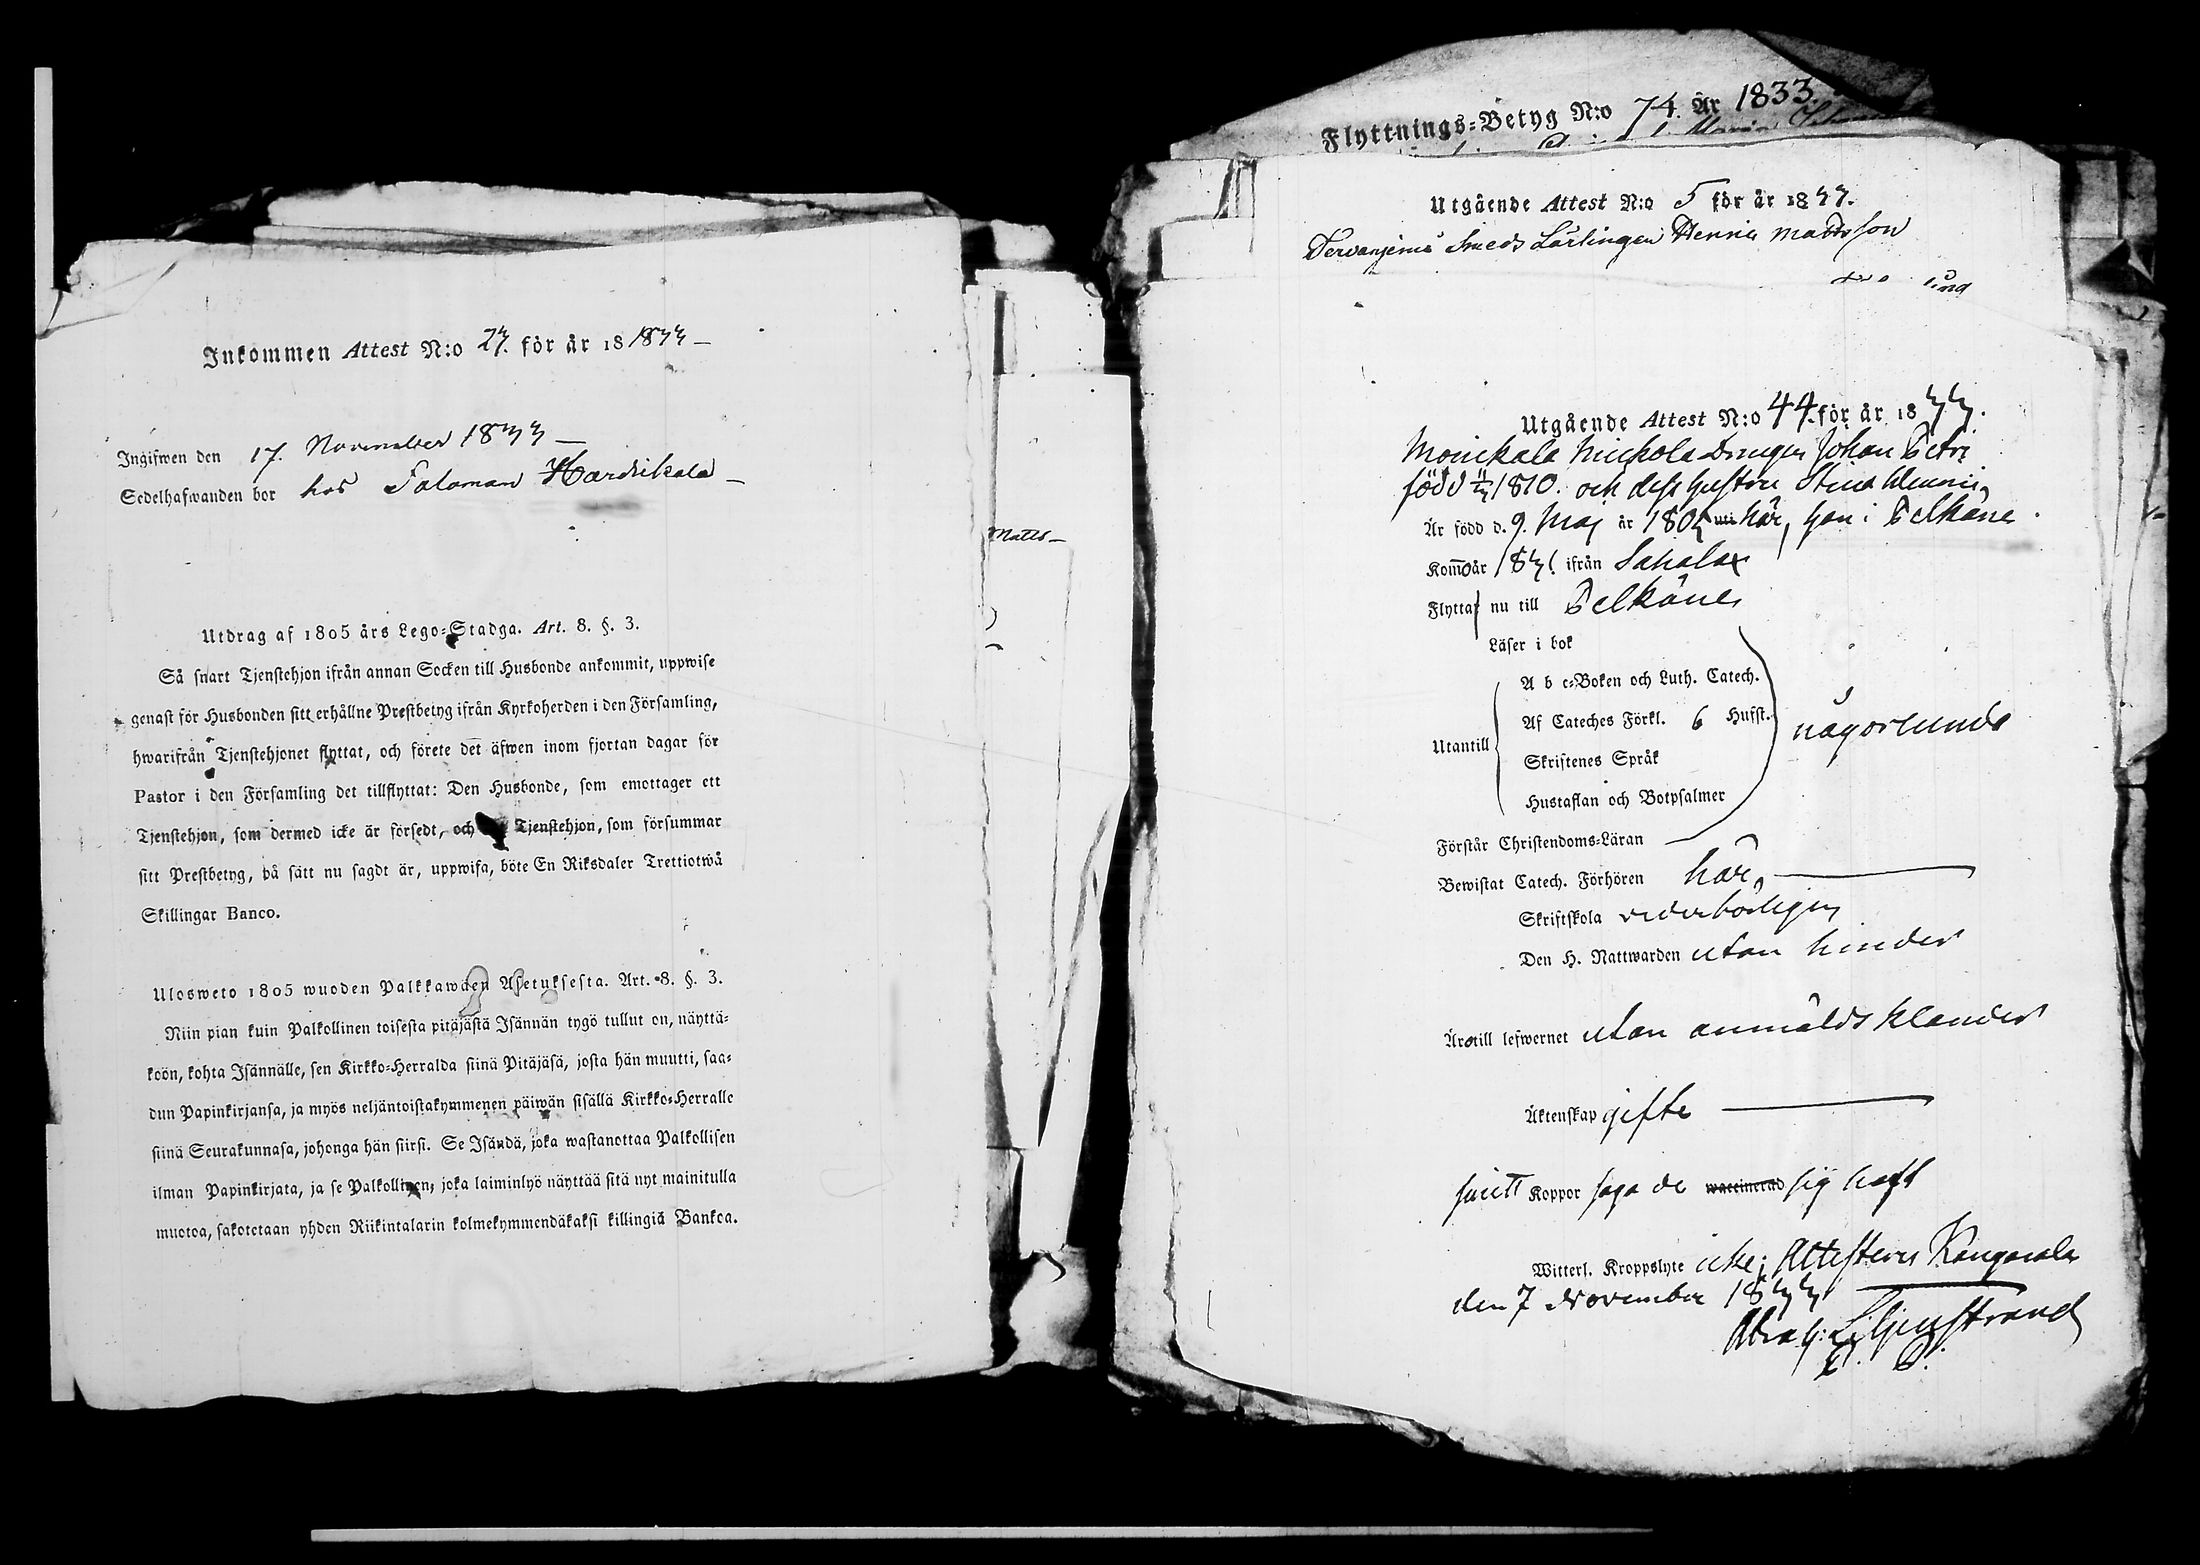 Inkommen Attest N:o 23. för år 18 1833 –
Ingifwen den 17. November 1833 –
Sedelhafwanden bor hos Salomon Hardikala –
Utdrag af 1805 års Lego-Stadga. Art. 8. §. 3.
Så snart Tjenstehjon ifrån annan Socken till Husbonde ankommit, uppwise
genast för Husbonden sitt erhållne Prestbetyg ifrån Kyrkoherden i den Församling,
hwarifrån Tjenstehjonet flyttat, och förete det äfwen inom fjortan dagar för
Pastor i den Församling det tillflyttat: Den Husbonde, som emottager ett
Tjenstehjon, som dermed icke är försedt, och Tjenstehjon, som försummar
sitt Prestbetyg, på sätt nu sagdt är, uppwisa, böte En Riksdaler Trettiotwå
Skillingar Banco.
Ulosweto 1805 wuoden Palkkawäen Asetuksesta. Art. 8. §. 3.
Niin pian kuin Palkollinen toisesta pitäjästä Isännän tygö tullut on, näyttä-
köön, kohta Isännälle, sen Kirkko-Herralda siinä Pitäjäsä, josta hän muutti, saa-
dun Papinkirjansa, ja myös neljäntoistakymmenen päiwän sisällä Kirkko-Herralle
siinä Seurakunnasa, johonga hän siirsi. Se Isändä, joka wastanottaa Palkollisen
ilman Papinkirjata, ja se Palkollinen, joka laiminlyö näyttää sitä nyt mainitulla
muotoa, sakotetaan yhden Riikintalarin kolmekymmendäkaksi killingiä Bankoa.
Matts –
Flyttnings-Betyg N:o 74. År 1833.
Maria
Utgående Attest N:o 5 för år 1833.
Smeds Lärlingen Henric Mattsson
Utgående Attest N:o 44. för år 1833.
Monikala Drengen Johan Petri
född 1810. och dess hustru Stina
Är född d. 9. Maj år 180 uti här, han i Pelkäne.
Kommo år 183 ifrån Sahalax
Flytta nu till Pelkäne
Läser i bok
A b c-Boken och Luth. Catech.
Af Cateches Förkl. 6 Hufst.
Utantill
någorlunda
Skriftenes Språk
Hustaflan och Botpsalmer
Förstår Christendoms-Läran
Bewistat Catech. Förhören här,
Skriftskola vederbörligen
Den H. Nattwarden utan hinder
Äro till lefwernet utan anmäldt klander
Äktenskap gifte
haft Koppor säga de waccinerad sig haft
Witterl. Kroppslyte icke; Attesterar Kangasala
den 7 November 1833
Abrah: Liljenstrand